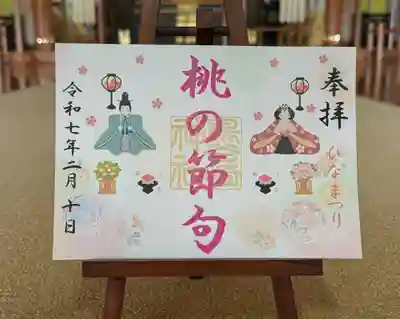 奉拝
ひなまつり
桃の節句
令和七年二月十日